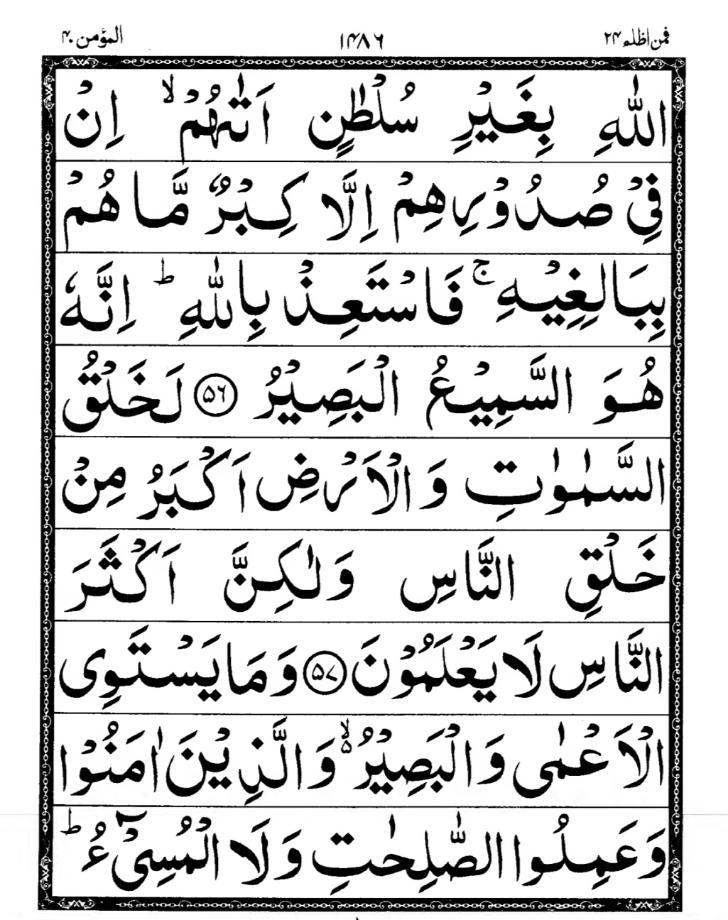 فمن اظلم ۲۴ ۱۴۸۶ المؤمن ۴۰
اللّٰهِ بِغَيْرِ سُلْطٰنٍ اَتٰىهُمْ ۙ اِنْ
فِيْ صُدُوْرِهِمْ اِلَّا كِبْرٌ مَّا هُمْ
بِبَالِغِيْهِ ۚ فَاسْتَعِذْ بِاللّٰهِ ؕ اِنَّهٗ
هُوَ السَّمِيْعُ الْبَصِيْرُ ﴿۵۶﴾ لَخَلْقُ
السَّمٰوٰتِ وَالْاَرْضِ اَكْبَرُ مِنْ
خَلْقِ النَّاسِ وَلٰكِنَّ اَكْثَرَ
النَّاسِ لَا يَعْلَمُوْنَ ﴿۵۷﴾ وَمَا يَسْتَوِى
الْاَعْمٰى وَالْبَصِيْرُ ۙ۬ وَالَّذِيْنَ اٰمَنُوْا
وَعَمِلُوا الصّٰلِحٰتِ وَلَا الْمُسِيْٓءُ ؕ